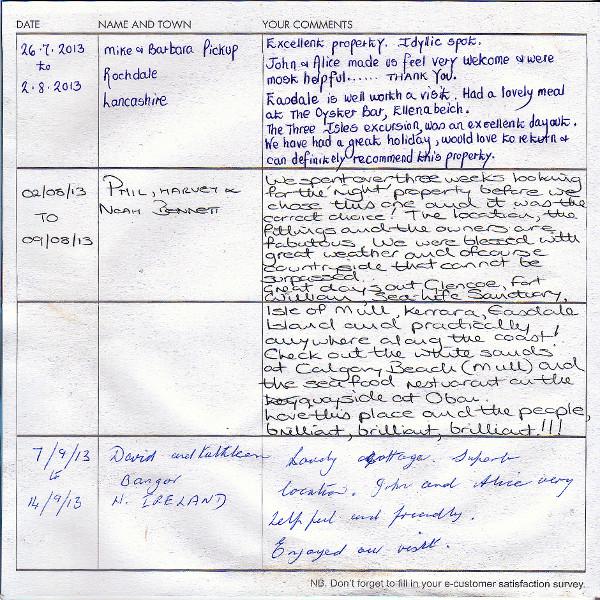 DATE NAME AND TOWN YOUR COMMENTS
26.7.2013
to
2.8.2013
Mike & Barbara Pickup
Rochdale
Lancashire
Excellent property. Idyllic spot.
John & Alice made us feel very welcome & were
most helpful...... THANK YOU.
Easdale is well worth a visit. Had a lovely meal
at The Oyster Bar, Ellenabeich.
The Three Isles excursion, was an excellent day out.
We have had a great holiday, would love to return &
can definitely recommend this property.
02/08/13
TO
09/08/13
PHIL, HARVEY &
NOAH BENNETT
We spent over three weeks looking
for the 'right' property before we
chose this one and it was the
correct choice! The location, the
fittings and the owners are
fabulous. We were blessed with
great weather and ofcourse
countryside that cannot be
surpassed.
Great days out Glencoe, Fort
William, Sea-Life Sanctuary,
Isle of Mull, Kerrara, Easdale
Island and practically
anywhere along the coast!
Check out the white sands
at Calgary Beach (Mull) and
the sea food restaurant on the
quayside at Oban.
Love this place and the people,
brilliant, brilliant, brilliant!!!
7/9/13
to
14/9/13
David and Kathleen
Bangor
N. IRELAND
Lovely cottage. Superb
location. John and Alice very
helpful and friendly.
Enjoyed our visit.
NB. Don't forget to fill in your e-customer satisfaction survey.